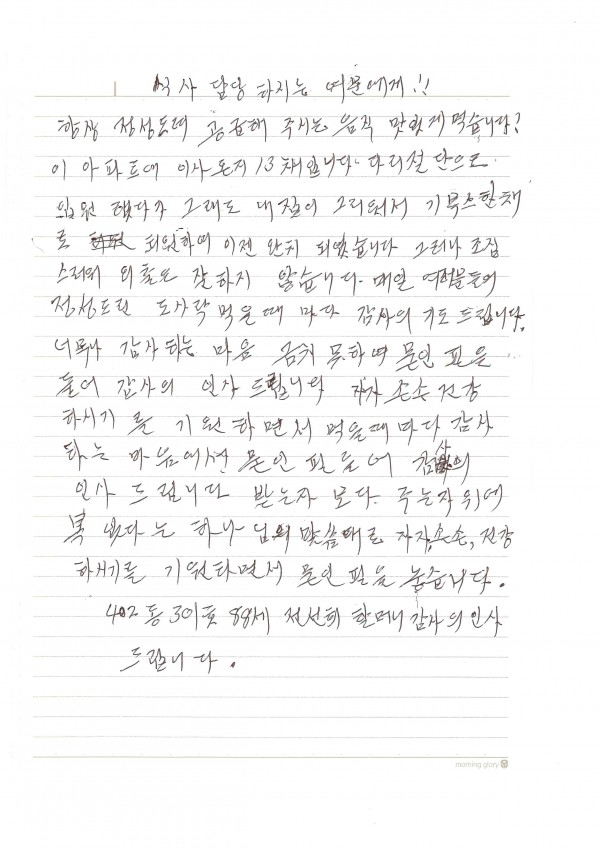 식사 담당 하시는 여러분에게!!
항상 정성드려 공급해 주시는 음식 맛있게 먹습니다!
이 아파트에 이사 온지 13채입니다. 다리절단으로
입원 했다가 그래도 내집이 그리워서 기부스한채
로 퇴원하여 이젠 완치 되었습니다 그러나 조심
스러워 외출은 잘하지 않습니다. 매일 여러분들의
정성드린 도시락 먹을때 마다 감사의 기도 드립니다.
너무나 감사하는 마음 금치 못하여 문인 펜을
들어 감사의 인사 드립니다 자자 손손 건강
하시기 를 기원하면서 먹을때마다 감사
하는 마음에서 문인 펜을들어 감사의
인사 드립니다 받는자 보다. 주는자위에
복 있다는 하나님의 말씀대로 자자,손손, 건강
하시기를 기원하면서 문인 펜을 놓습니다.
402동 301호 88세 전선희 할머니 감사의 인사
드립니다.
morning glory